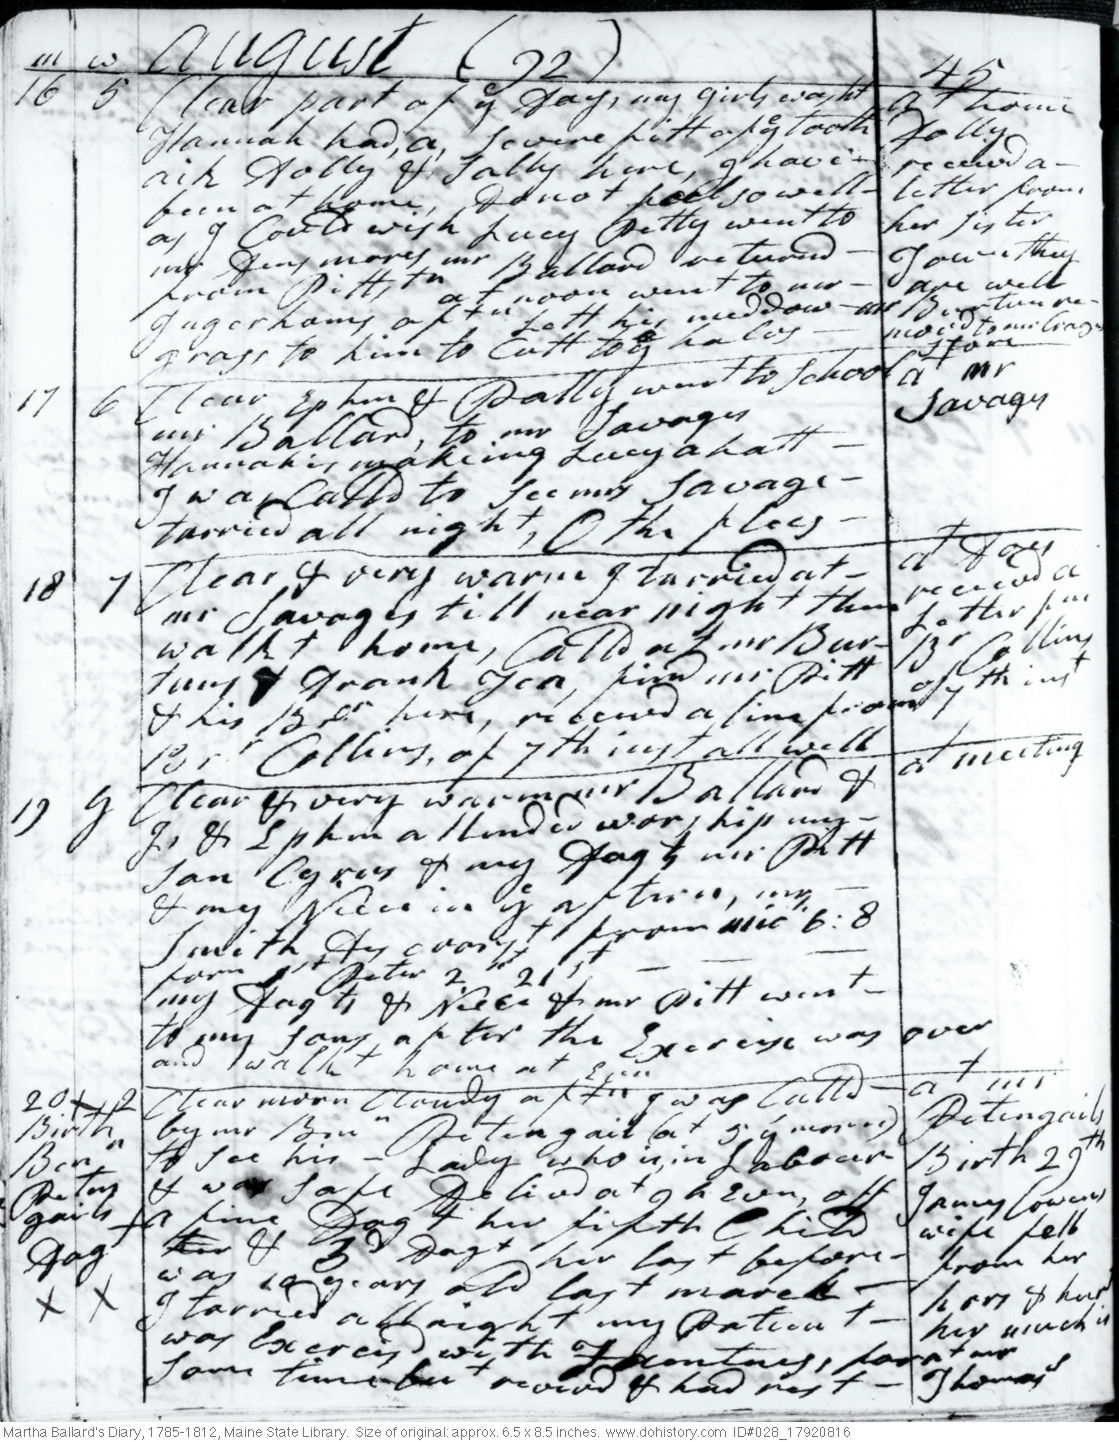 m w August (92) 45
16 5 Clear part of ye Day, my girls washt
Hannah had, a, severe fitt of ye tooth
aik Dolly & Sally here, I have
been at home, do not feel so well
as I Could wish Lucy Patty went to
mr Densmores, mr Ballard returnd
from Pittstn at noon went to mr
Ingerhams aftn Lett his meddow
grass to him to Cutt to ye halvs
at home
Dolly
receivd a
letter from
her sister
Town they
are well
mr Burtun re-
movd to mr Craggs
store
17 6 Clear Ephm & Dolly went to School
mr Ballard, to mr Savages
Hannah is makeing Lucy a hatt
I was Calld to See mrs Savage
tarried all night, O the flees
at mr
Savages
18 7 Clear & very warm I tarried at
mr Savages till near night then
walkt home, Calld at mr Bur-
tuns & Drank Tea, find mr Pitt
& his Bror here, receivd a line from
Br Collins, of 7th inst all well
at Does
receivd a
Letter fm
Br Collins
of 7th inst
19 g Clear & very warm mr Ballard &
Js & Ephm attended worship my
son Cyrus & my Dagts mr Pitt
& my Niece in ye aftern, mr
Smith Discoarst from Mic 6:8
forn 1st Peter 2nd 21st
my Dagts & Niece & mr Pitt went
to my sons after the Exercise was over
and walkt home at Evn
at meeting
20 2 Clear morn Cloudy aftn I was Calld
by mr Bnn Petengail (at 5 ye morn)
to see his Lady who is in Labour
& was safe Delivd at 9 h Evn, off
a fine Dagt her fifth Child
& 3d Dagt her last before
was 10 years old last march
I tarried all night my Patient
was Excercisd with Faintness, for
some time but revivd & had rest
Birth
Benn
Peten
gails
Dag
X X
at mr
Petengails
Birth 29th
James Cowens
wife fell
from her
hors & hurt
her much
at mr
Thomas's
Martha Ballard's Diary, 1785-1812, Maine State Library. Size of original: approx. 6.5 x 8.5 inches. www.dohistory.com ID#028_17920816